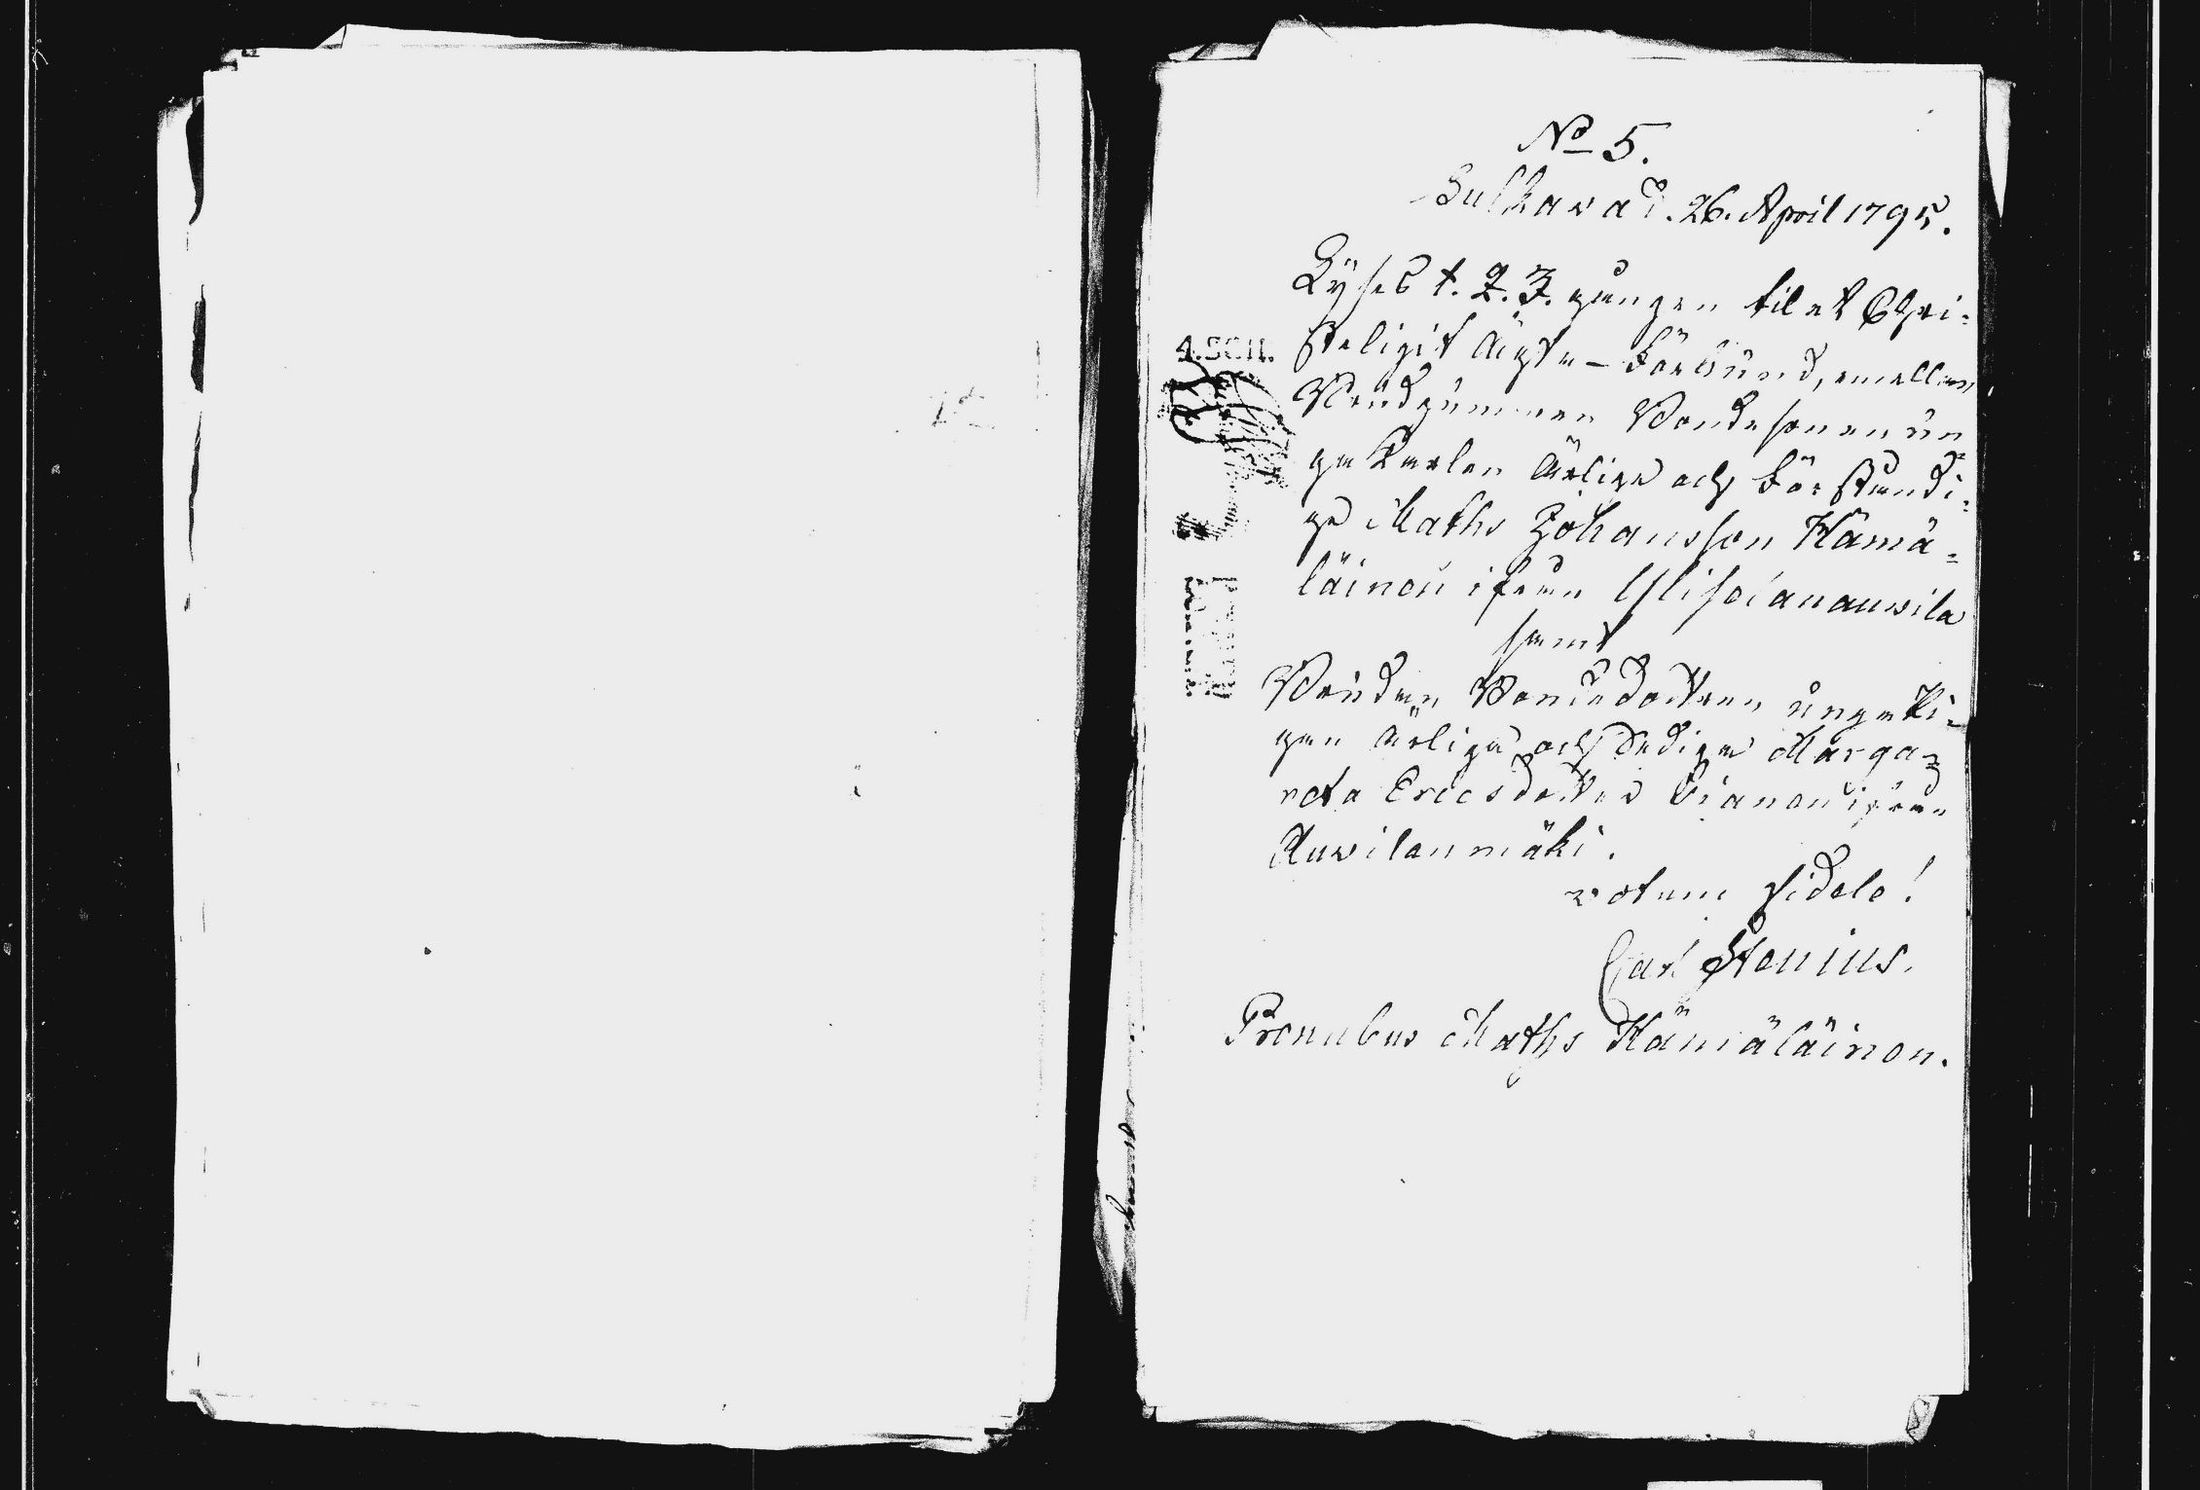 No 5.
Sulkava d. 26. April 1795.
Lyses 1. 2. 3. gången til et Chri-
steligit Ächta-Förbund, emellan
Brudgummen Bondesonen un
ge Karlen Ärlige och Förståndi-
ge Maths Johansson Hämä-
läinen ifrån Ylisoianauvila
samt
Bruden Bondedottren unga Pi-
gan ärliga och dediga Marga-
reta Ericsdotter Oianen ifrån
Auvilanmäki.
votum fidele!
Carl Stenius.
Pronubus Maths Hämäläinen.
4.SCH.